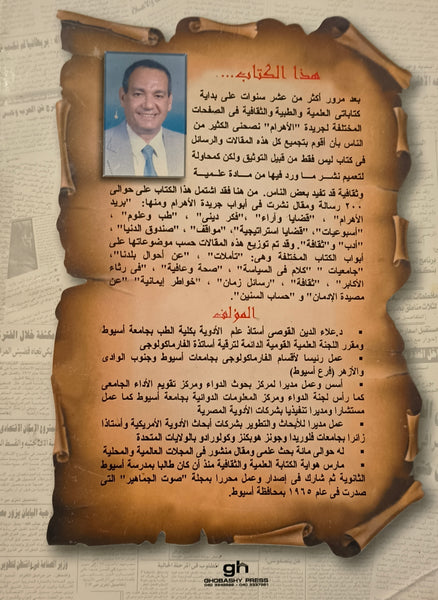 هذا الكتاب...
بعد مرور أكثر من عشر سنوات على بداية
كتاباتى العلمية والطبية والثقافية فى الصفحات
المختلفة لجريدة "الأهرام" نصحنى الكثير من
الناس بأن أقوم بتجميع كل هذه المقالات والرسائل
فى كتاب ليس فقط من قبيل التوثيق ولكن كمحاولة
لتعميم نشر ما ورد فيها من مادة علمية
وثقافية قد تفيد بعض الناس. من هنا فقد اشتمل هذا الكتاب على حوالى
٢٠٠ رسالة ومقال نشرت فى أبواب جريدة الأهرام ومنها: "بريد
الأهرام" ، "قضايا وآراء"، "فكر دينى" ، "طب وعلوم" ،
"أسبوعيات"، "قضايا استراتيجية"، "مواقف"، "صندوق الدنيا" ،
"أدب" و"ثقافة". وقد تم توزيع هذه المقالات حسب موضوعاتها على
أبواب الكتاب المختلفة وهى: "تأملات" ، "عن أحوال بلدنا"،
"جامعيات" "كلام فى السياسة" ، "صحة وعافية" ، "فى رثاء
الأكابر" ، "ثقافة" ، "رسائل زمان" ، "خواطر إيمانية" "عن
مصيدة الإدمان" و "حساب السنين".
المؤلف
د.علاء الدين القوصى أستاذ علم الأدوية بكلية الطب بجامعة أسيوط
ومقرر اللجنة العلمية القومية الدائمة لترقية أساتذة الفارماكولوجى
عمل رئيسا لأقسام الفارماكولوجى بجامعات أسيوط وجنوب الوادى
والأزهر (فرع أسيوط)
أسس وعمل مديرا لمركز بحوث الدواء ومركز تقويم الأداء الجامعى
كما رأس لجنة الدواء ومركز المعلومات الدوائية بجامعة أسيوط كما عمل
مستشارا ومديرا تنفيذيا بشركات الأدوية المصرية
عمل مديرا للأبحاث والتطوير بشركات أبحاث الأدوية الأمريكية وأستاذا
زائرا بجامعات فلوريدا وجونز هوبكنز وكولورادو بالولايات المتحدة
له حوالى مائة بحث علمى ومقال منشور فى المجلات العالمية والمحلية
مارس هواية الكتابة العلمية والثقافية منذ أن كان طالبا بمدرسة أسيوط
الثانوية ثم شارك فى إصدار وعمل محررا بمجلة "صوت الجماهير" التى
صدرت فى عام ١٩٦٥ بمحافظة أسيوط.
gh
GHOBASHY PRESS